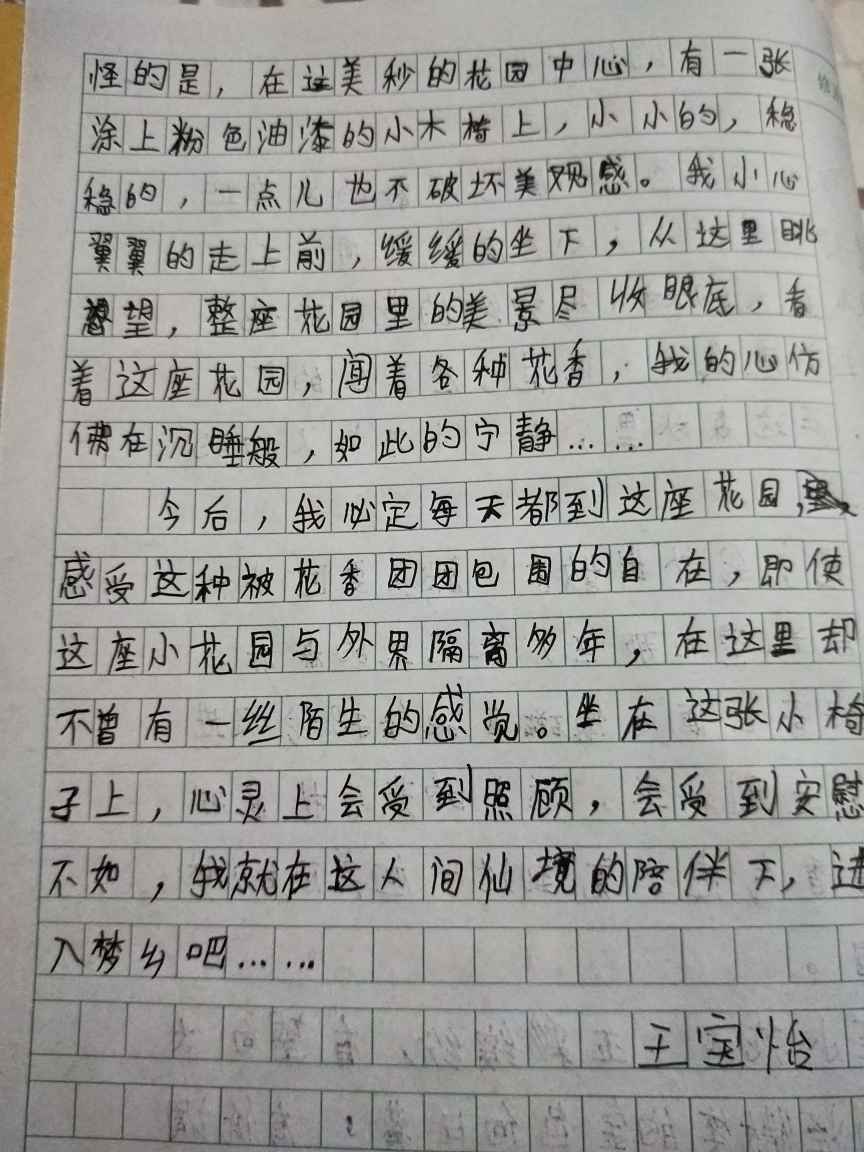 怪的是，在这美秒的花园中心，有一张
涂上粉色油漆的小木椅上，小小的，稳
稳的，一点儿也不破坏美观感。我小心
翼翼的走上前，缓缓的坐下，从这里眺
望，整座花园里的美景尽收眼底，看
着这座花园，闻着各种花香，我的心仿
佛在沉睡般，如此的宁静……
今后，我必定每天都到这座花园，
感受这种被花香团团包围的自在，即使
这座小花园与外界隔离多年，在这里却
不曾有一丝陌生的感觉。坐在这张小椅
子上，心灵上会受到照顾，会受到安慰
不如，我就在这人间仙境的陪伴下，进
入梦乡吧……
王宝怡